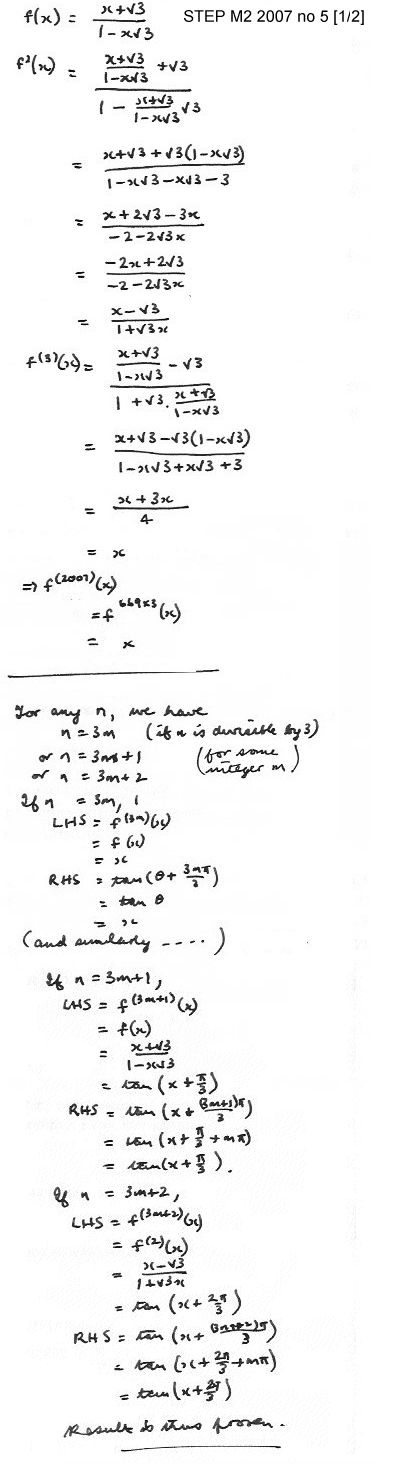 STEP M2 2007 no 5 [1/2]
f(x) = (x+√3)/(1-x√3)
f²(x) = ((x+√3)/(1-x√3) + √3)/(1 - (x+√3)/(1-x√3) √3)
= (x+√3 + √3(1-x√3))/(1-x√3-x√3-3)
= (x+2√3-3x)/(-2-2√3x)
= (-2x+2√3)/(-2-2√3x)
= (x-√3)/(1+√3x)
f⁽³⁾(x) = ((x+√3)/(1-x√3) - √3)/(1 + √3 . (x+√3)/(1-x√3))
= (x+√3-√3(1-x√3))/(1-x√3+x√3+3)
= (x+3x)/4
= x
⇒ f⁽²⁰⁰⁷⁾(x)
= f^(669×3) (x)
= x
For any n, we have
n = 3m (if n is divisible by 3)
or n = 3m+1 (for some
or n = 3m+2 integer m)
If n = 3m,
LHS = f⁽³ᵐ⁾(x)
= f(x)
= x
RHS = tan(θ + 3mπ/3)
= tan θ
= x
(and similarly ----)
If n = 3m+1,
LHS = f⁽³ᵐ⁺¹⁾(x)
= f(x)
= (x+√3)/(1-x√3)
= tan (x + π/3)
RHS = tan (x + (3m+1)π/3)
= tan (x + π/3 + mπ)
= tan(x + π/3).
If n = 3m+2,
LHS = f⁽³ᵐ⁺²⁾(x)
= f⁽²⁾(x)
= (x-√3)/(1+√3x)
= tan (x + 2π/3)
RHS = tan (x + (3m+2)π/3)
= tan (x + 2π/3 + mπ)
= tan(x + 2π/3)
Result is thus proven.